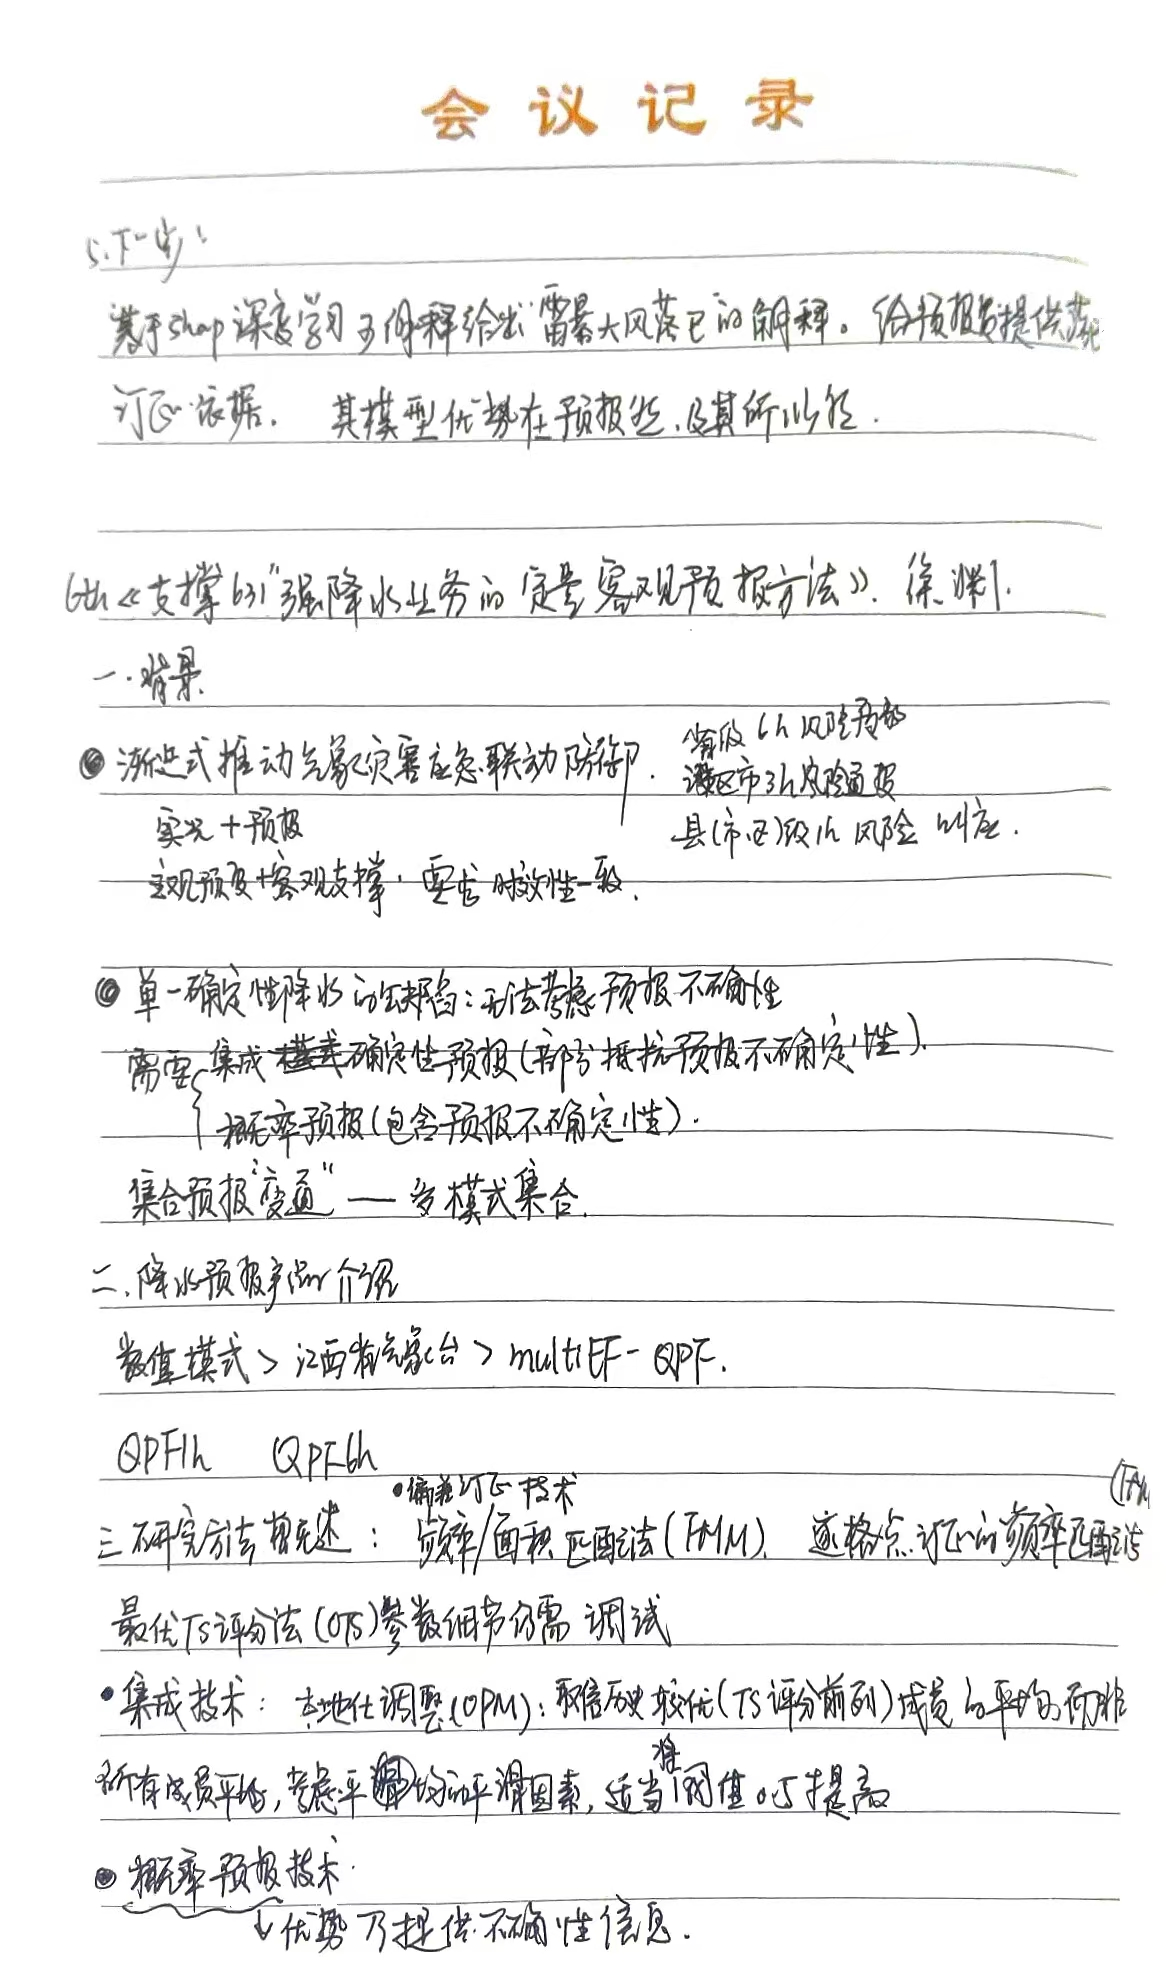 会议记录
5.下一步:
基于shap深度学习可解释给出雷暴大风落区的解释。给预报员提供
订正依据. 其模型优势在预报然,及其所以然.
6th《支撑"631"强降水业务的定量客观预报方法》. 徐
一.背景
渐进式推动气象灾害应急联动防御.
省级6h风险预报
设区市3h风险通报
县(市区)级1h风险叫应.
实况+预报
主观预报+客观支撑,要求时效性一致.
单一确定性降水的缺陷:无法考虑预报不确性
需要 集成 确定性预报(部分抵抗预报不确定性).
概率预报(包含预报不确定性).
集合预报"变通" — 多模式集合.
二.降水预报产品介绍
数值模式>江西省气象台>multiEF-QPF.
QPF1h QPF6h
•偏差订正技术
三.研究方法概述: 频率/面积匹配法(FMM). 逐格点订正的频率匹配法
最优TS评分法(OTS)参数细节仍需调试
•集成技术: 本地化调整(OPM):取信历史较优(TS评分前列)成员的平均而非
所有成员平均,考虑平均的平滑因素,适当将阈值 提高
概率预报技术.
↓优势乃提供不确性信息.